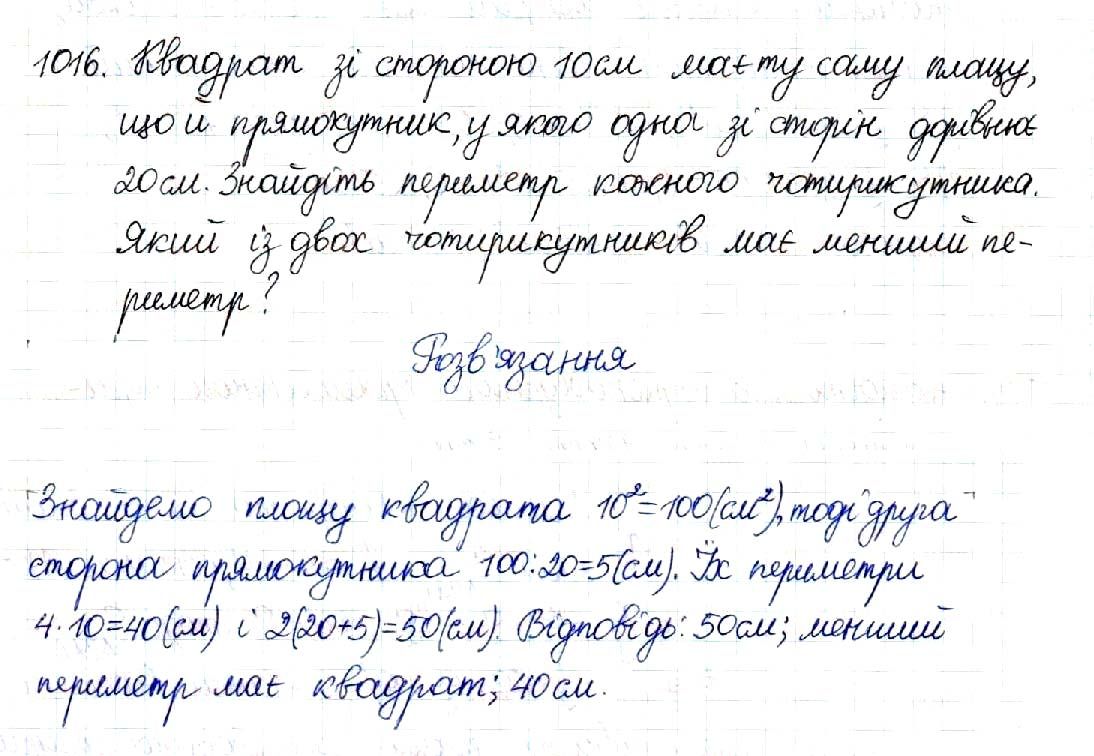 1016. Квадрат зі стороною 10см має ту саму площу,
що й прямокутник, у якого одна зі сторін дорівнює
20см. Знайдіть периметр кожного чотирикутника.
Який із двох чотирикутників має менший пе-
риметр?
Розв'язання
Знайдемо площу квадрата 10²=100(см²), тоді друга
сторона прямокутника 100:20=5(см). Їх периметри
4·10=40(см) і 2(20+5)=50(см). Відповідь: 50см; менший
периметр має квадрат; 40см.